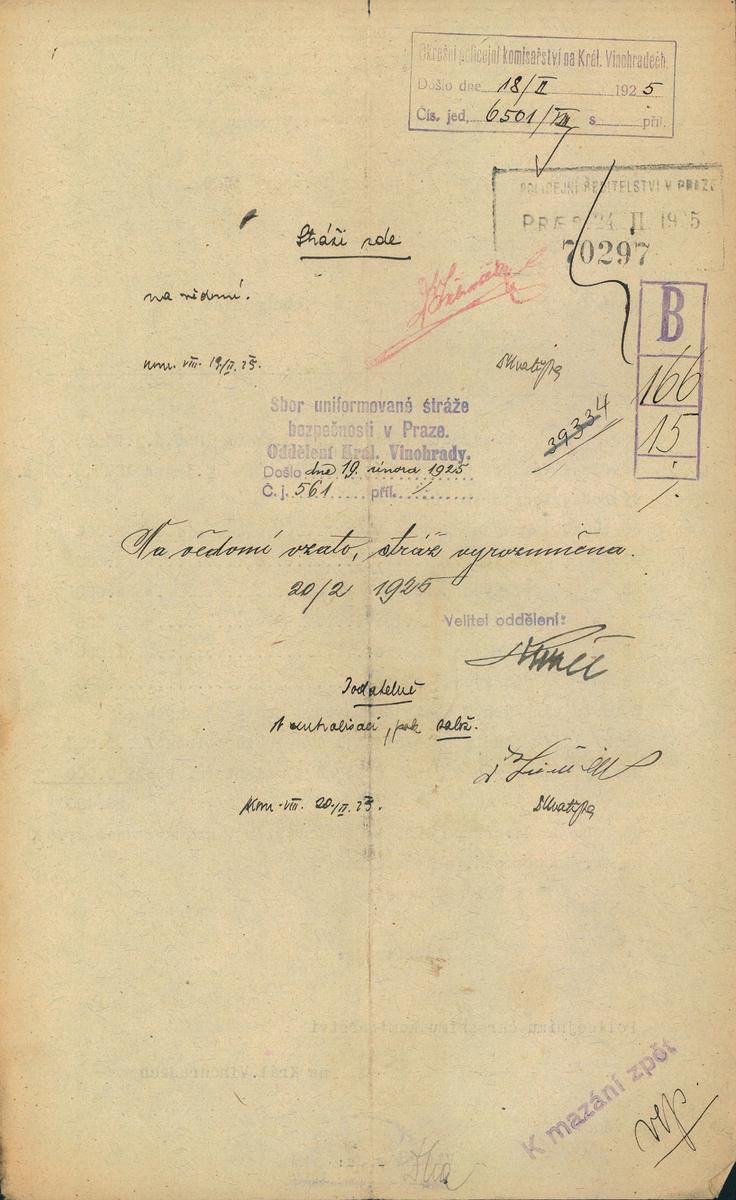 Okresní policejní komisařství na Král. Vinohradech.
Došlo dne 18/II 1925
Čís. jed. 6501/VIII s příl.
POLICEJNÍ ŘEDITELSTVÍ V PRAZE
PRAES 24 II 1925
70297
Stráži zde
na vědomí.
B
166
15
/.
kom. VIII. 19/II. 25.
39334
Sbor uniformované stráže
bezpečnosti v Praze.
Oddělení Král. Vinohrady.
Došlo dne 19. února 1925
Č. j. 561 příl. /.
Na vědomí vzato, stráž vyrozuměna.
20/2 1925
Velitel oddělení:
, pak
Kom. VIII. 20./II. 25.
Policejnímu
na Král. Vinohradech
K mazání zpět